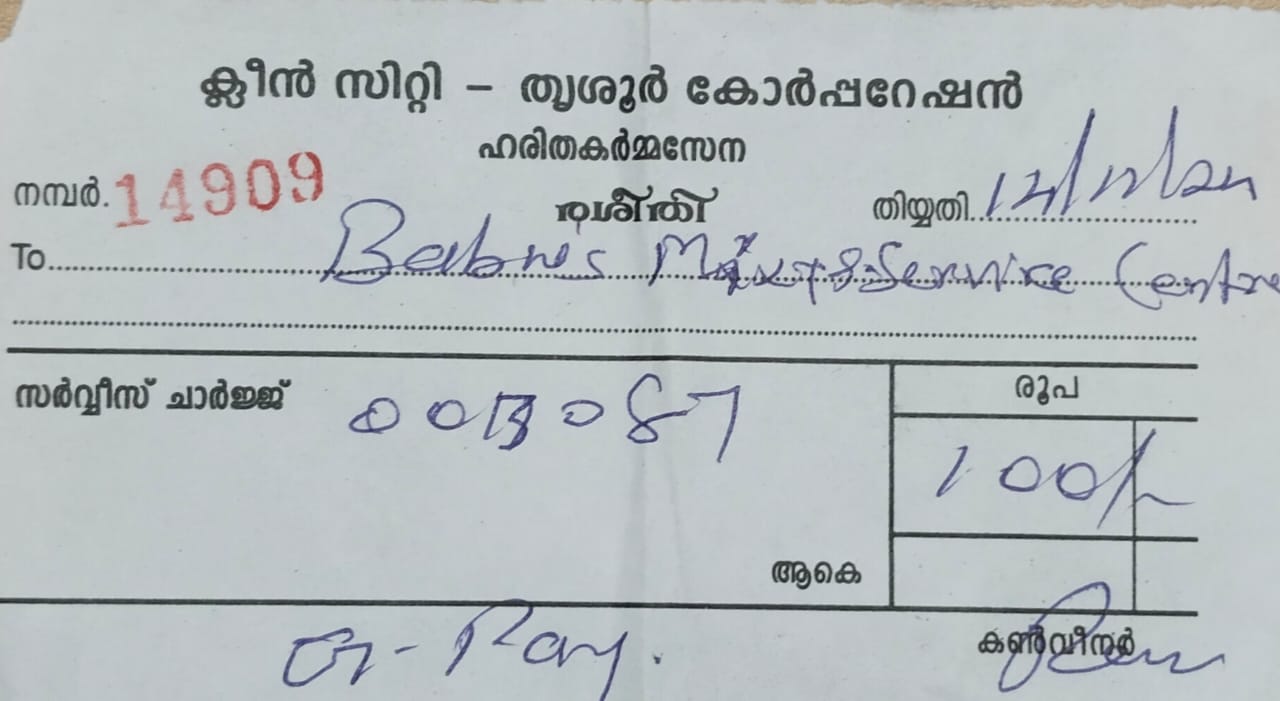 ക്ലീൻ സിറ്റി – തൃശൂർ കോർപ്പറേഷൻ
ഹരിതകർമ്മസേന
നമ്പർ. 14909 രശീതി തിയ്യതി
To Babu's Service Centre
സർവ്വീസ് ചാർജ്ജ് രൂപ
100/-
ആകെ
G-Pay.
കൺവീനർ